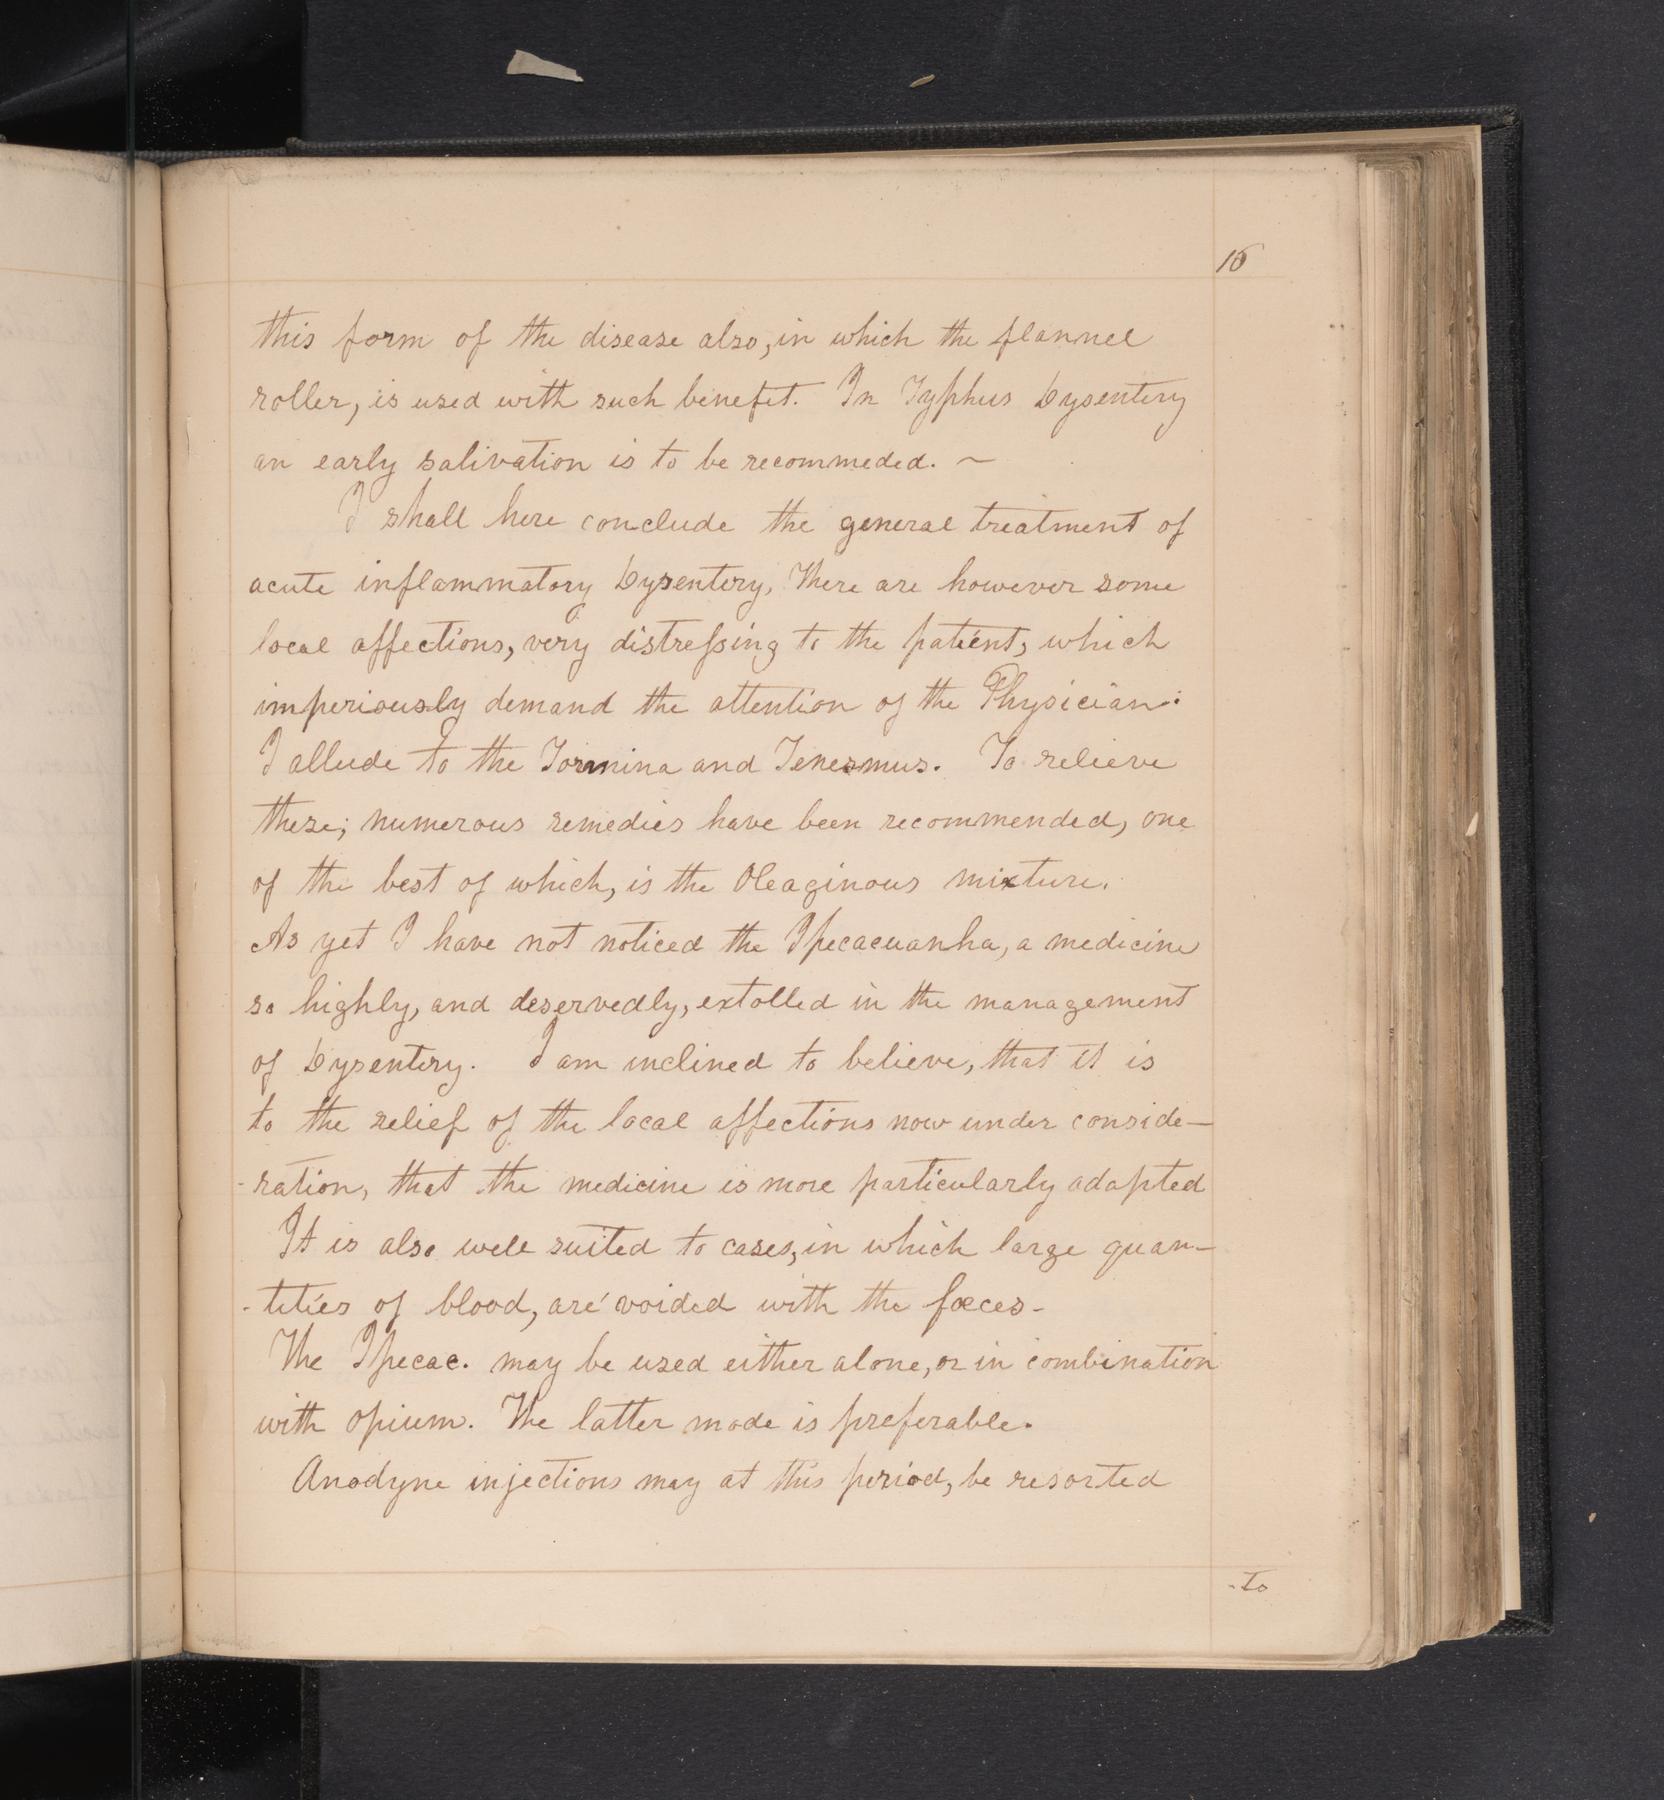 15
this form of the disease also, in which the flannel
roller, is used with such benefit. In Typhus Dysentery
an early salivation is to be recommeded. ~
I shall here conclude the general treatment of
acute inflammatory Dysentery, There are however some
local affections, very distressing to the patient, which
imperiously demand the attention of the Physician:
I allude to the Tormina and Tenesmus. To relieve
these; numerous remedies have been recommended, one
of the best of which, is the Oleaginous mixture.
As yet I have not noticed the Ipecacuanha, a medicine
so highly, and deservedly, extolled in the management
of Dysentery. I am inclined to believe, that it is
to the relief of the local affections now under conside-
-ration, that the medicine is more particularly adapted
It is also well suited to cases, in which large quan-
-tities of blood, are voided with the fœces-
The Ipecac. may be used either alone, or in combination
with opium. The latter mode is preferable.
Anodyne injections may at this period, be resorted
-to